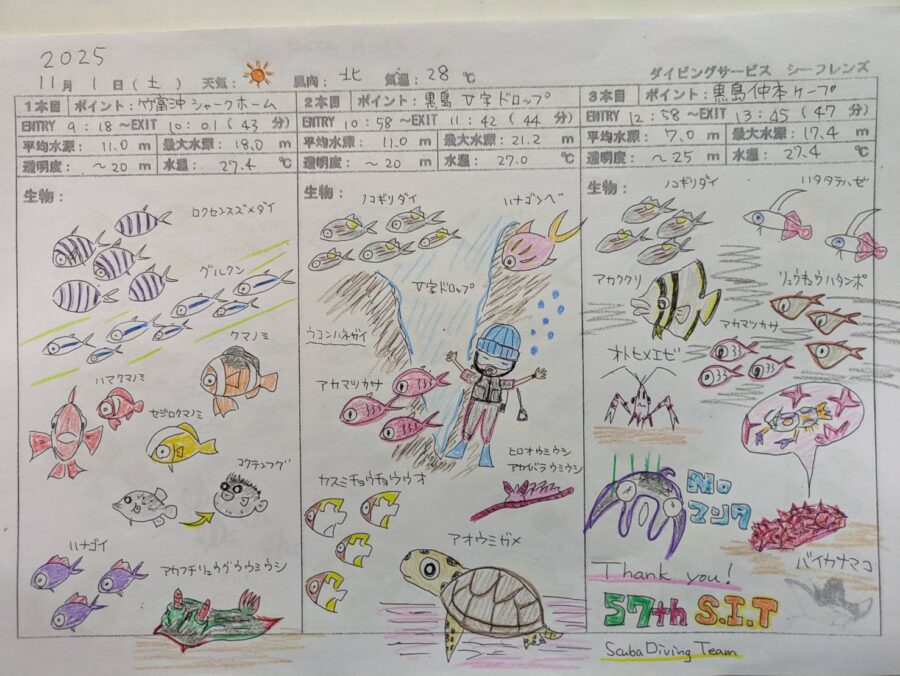 2025
11月 1日(土) 天気: 風向: 北 気温: 28 ℃ ダイビングサービス シーフレンズ
1本目 ポイント: 竹富沖シャークホーム
ENTRY 9:18 ~EXIT 10:01 ( 43 分)
平均水深: 11.0 m 最大水深: 18.0 m
透明度: ~20 m 水温: 27.4 ℃
生物:
ロクセンスズメダイ
グルクン
クマノミ
ハマクマノミ
セジロクマノミ
コクテンフグ
ハナゴイ
アカフチリュウグウウミウシ
2本目 ポイント: 黒島 V字ドロップ
ENTRY 10:58 ~EXIT 11:42 ( 44 分)
平均水深: 11.0 m 最大水深: 21.2 m
透明度: ~20 m 水温: 27.0 ℃
生物:
ノコギリダイ
ハナゴンベ
V字ドロップ
ウコンハネガイ
アカマツカサ
ヒロオウミウシ
アカイバラウミウシ
カスミチョウチョウウオ
アオウミガメ
3本目 ポイント: 黒島仲本ケーブ
ENTRY 12:58 ~EXIT 13:45 ( 47 分)
平均水深: 7.0 m 最大水深: 17.4 m
透明度: ~25 m 水温: 27.4 ℃
生物:
ノコギリダイ
ハタタテハゼ
アカククリ
リュウキュウハタンポ
アカマツカサ
オトヒメエビ
No
マンタ
バイカナマコ
Thank you!
57th S.I.T
Scuba Diving Team